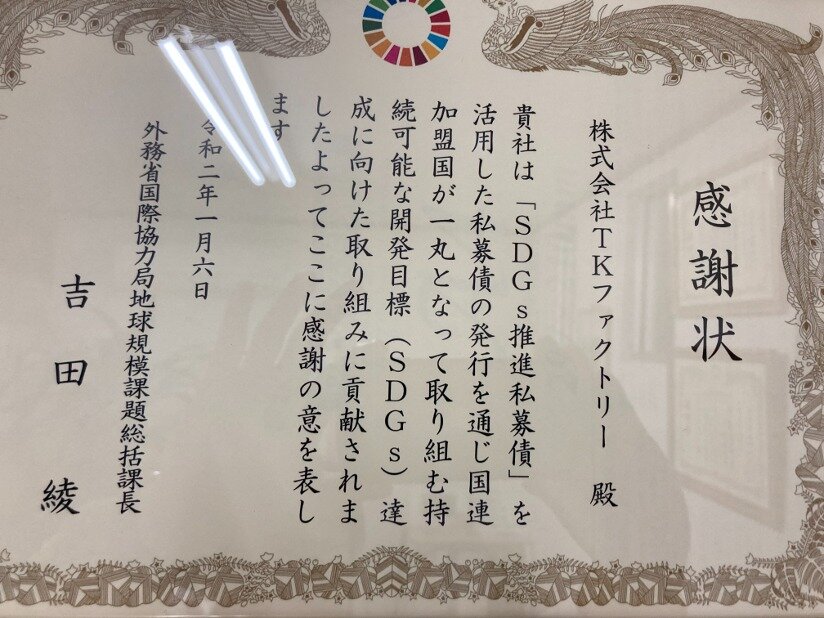 感謝状
株式会社TKファクトリー 殿
貴社は「SDGs推進私募債」を
活用した私募債の発行を通じ国連
加盟国が一丸となって取り組む持
続可能な開発目標(SDGs)達
成に向けた取り組みに貢献されま
したよってここに感謝の意を表し
ます
令和二年一月六日
外務省国際協力局地球規模課題総括課長
吉田 綾